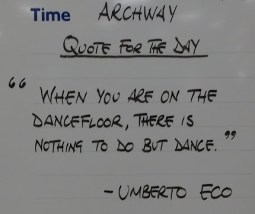 Time ARCHWAY
QUOTE FOR THE DAY
“ WHEN YOU ARE ON THE
DANCEFLOOR, THERE IS
NOTHING TO DO BUT DANCE. ”
- UMBERTO ECO